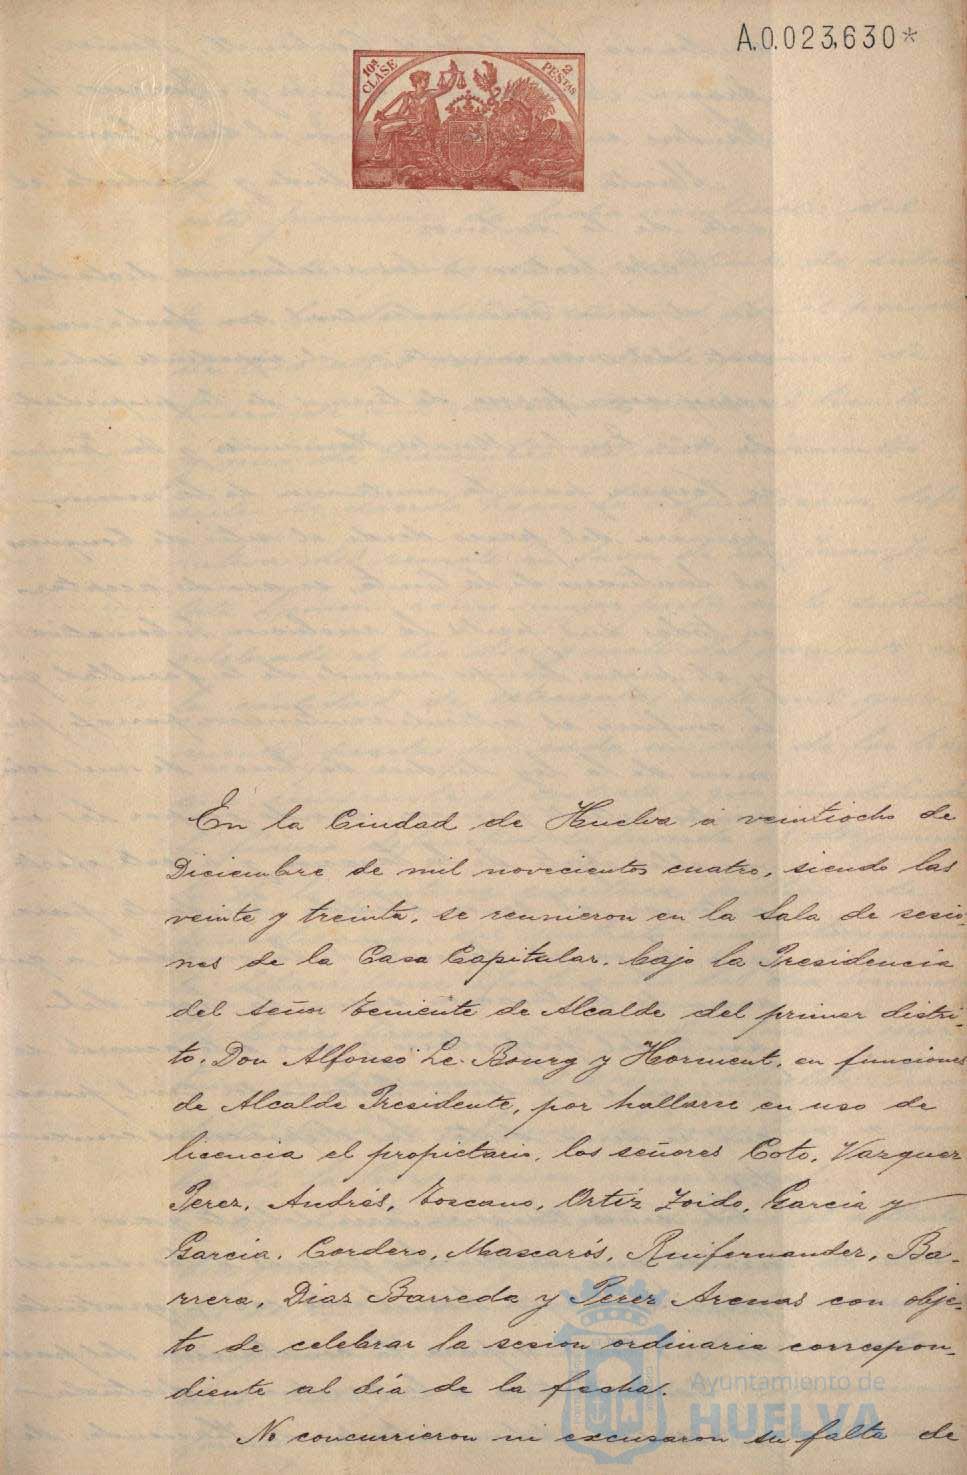 A.0.023,630*
10ª CLASE
2 PESTAS
En la Ciudad de Huelva á veintiocho de
Diciembre de mil novecientos cuatro, siendo las
veinte y treinta, se reunieron en la Sala de sesio-
nes de la Casa Capitular, bajo la Presidencia
del Señor Teniente de Alcalde del primer distri-
to, Don Alfonso Le-Bourg y Horment, en funciones
de Alcalde Presidente, por hallarse en uso de
licencia el propietario, los señores Coto, Vazquez
Perez, Andrés, Toscano, Ortiz Zoido, Garcia y
Garcia, Cordero, Mascarós, Ruifernandez, Ba-
rrera, Diaz Barreda y Perez Arenas con obje-
to de celebrar la sesion ordinaria correspon-
diente al día de la fecha.
No concurrieron ni excusaron su falta de
Ayuntamiento de
HUELVA